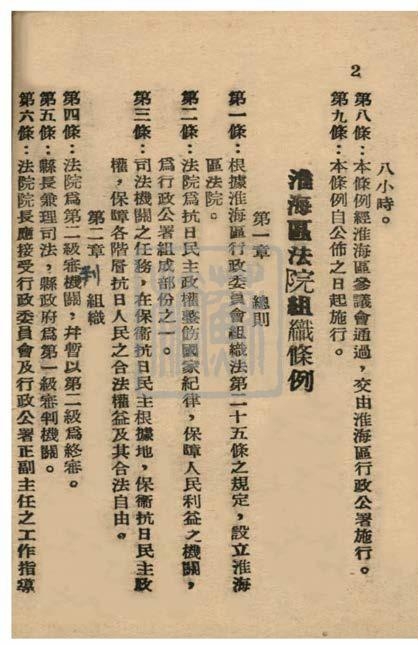 2
八小時。
第八條：本條例經淮海區參議會通過，交由淮海區行政公署施行。
第九條：本條例自公佈之日起施行。
淮海區法院組織條例
第一章　總則
第一條：根據淮海區行政委員會組織法第二十五條之規定，設立淮海
區法院。
第二條：法院爲抗日民主政權整飭國家紀律，保障人民利益之機關，
爲行政公署組成部份之一。
第三條：司法機關之任務，在保衞抗日民主根據地，保衞抗日民主政
權，保障各階層抗日人民之合法權益及其合法自由。
第二章　組織
第四條：法院爲第二級審機關，幷暫以第二級爲終審。
第五條：縣長兼理司法，縣政府爲第一級審判機關。
判
第六條：法院院長應接受行政委員會及行政公署正副主任之工作指導